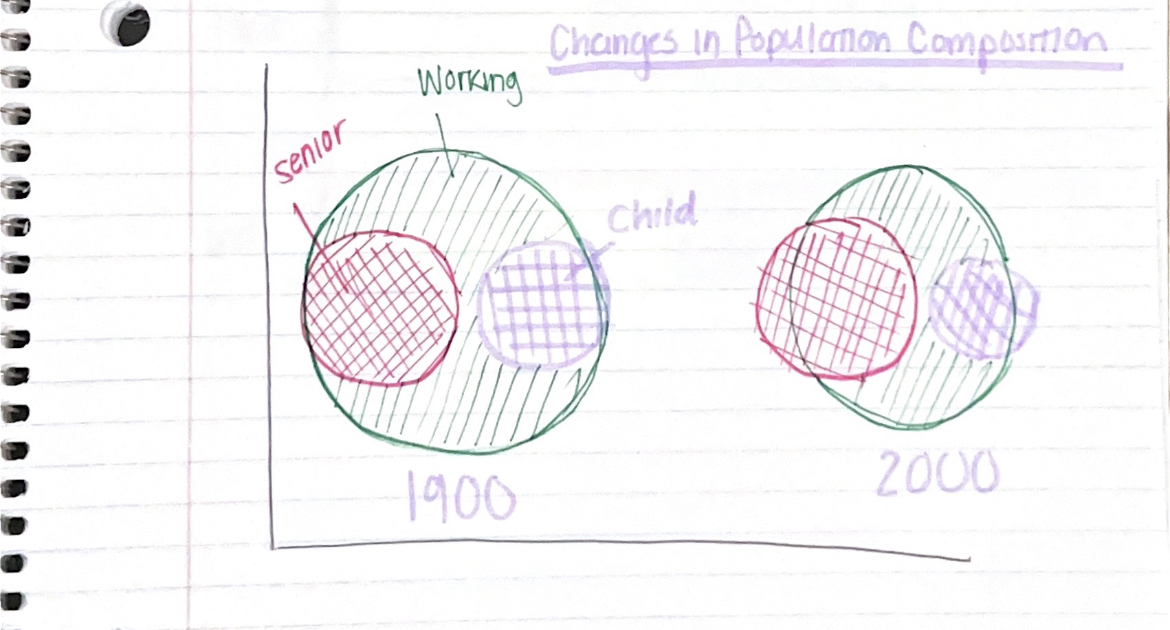 Changes in Population Composition
Working
senior
Child
1900
2000